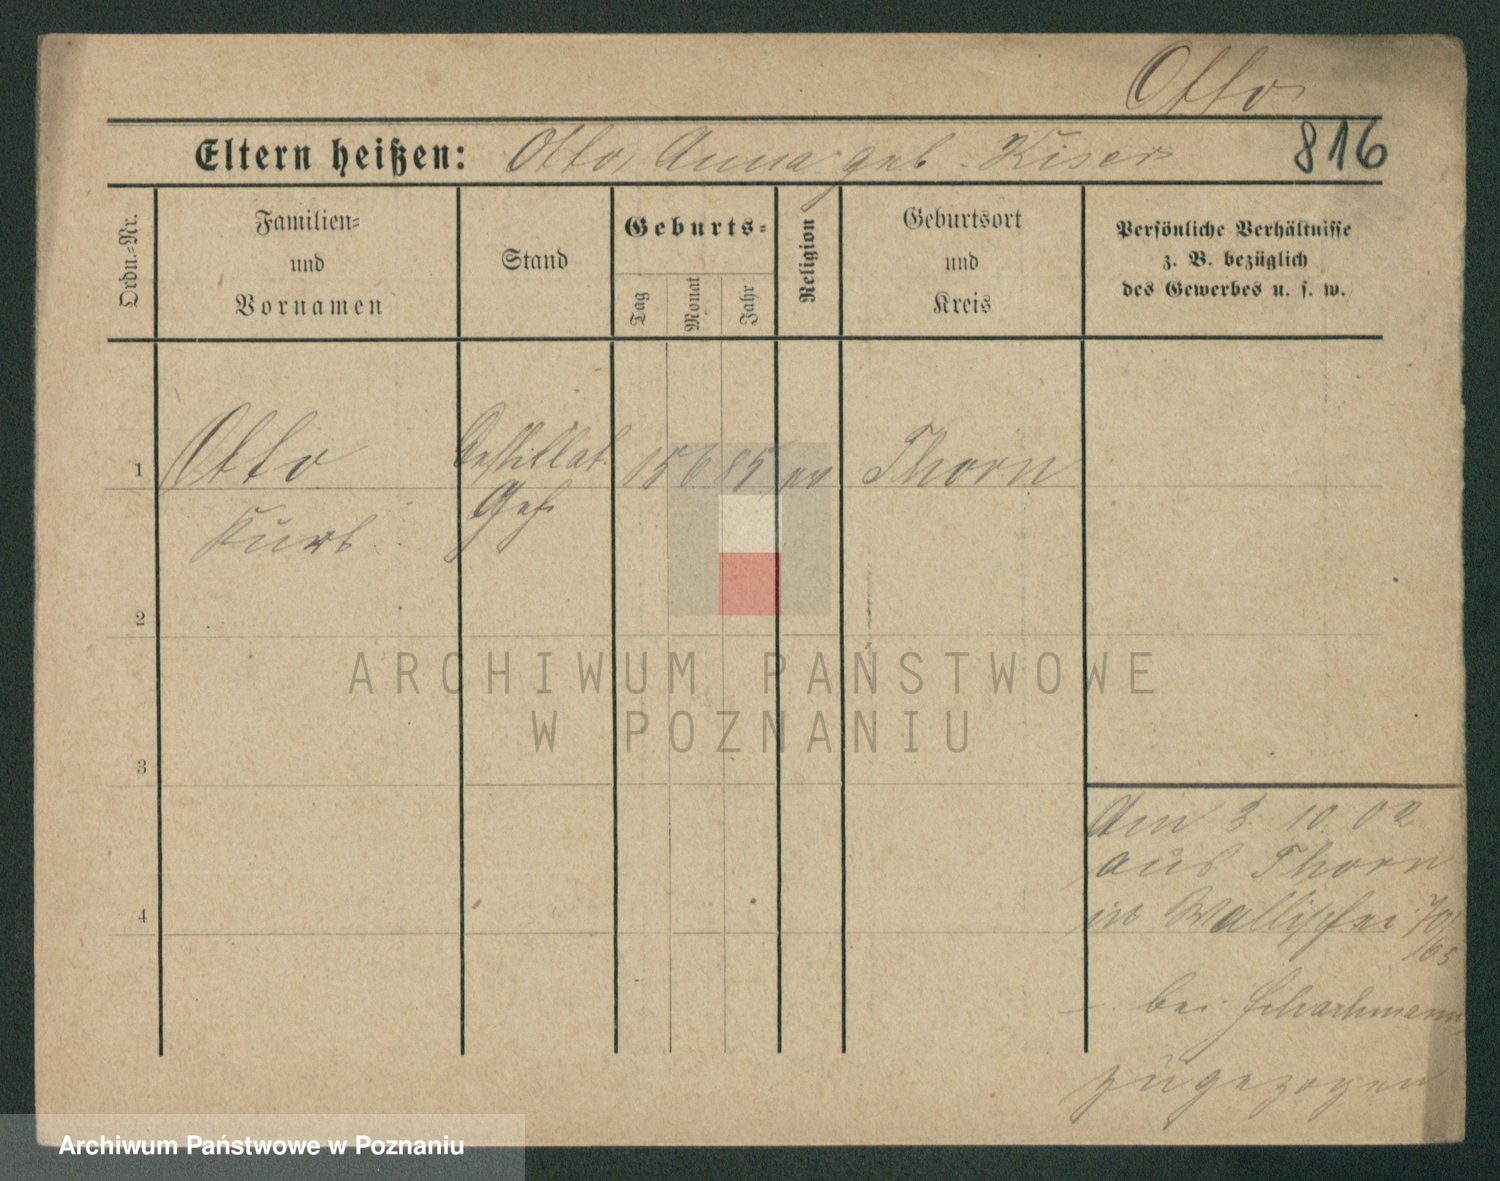 Otto
Eltern heißen: Otto, Anna geb. Kiser
816
Ordn.-Nr.
Familien-
und
Vornamen
Stand
Geburts-
Tag
Monat
Jahr
Religion
Geburtsort
und
Kreis
Persönliche Verhältnisse
z. B. bezüglich
des Gewerbes u. s. w.
1
Otto
Destillat.
15 6 85 ev
Thorn
Kurt
Geh.
2
3
4
Am 3. 10. 02
aus Thorn
in Wallischei 70/
bei
zugezogen
ARCHIWUM PAŃSTWOWE
W POZNANIU
Archiwum Państwowe w Poznaniu